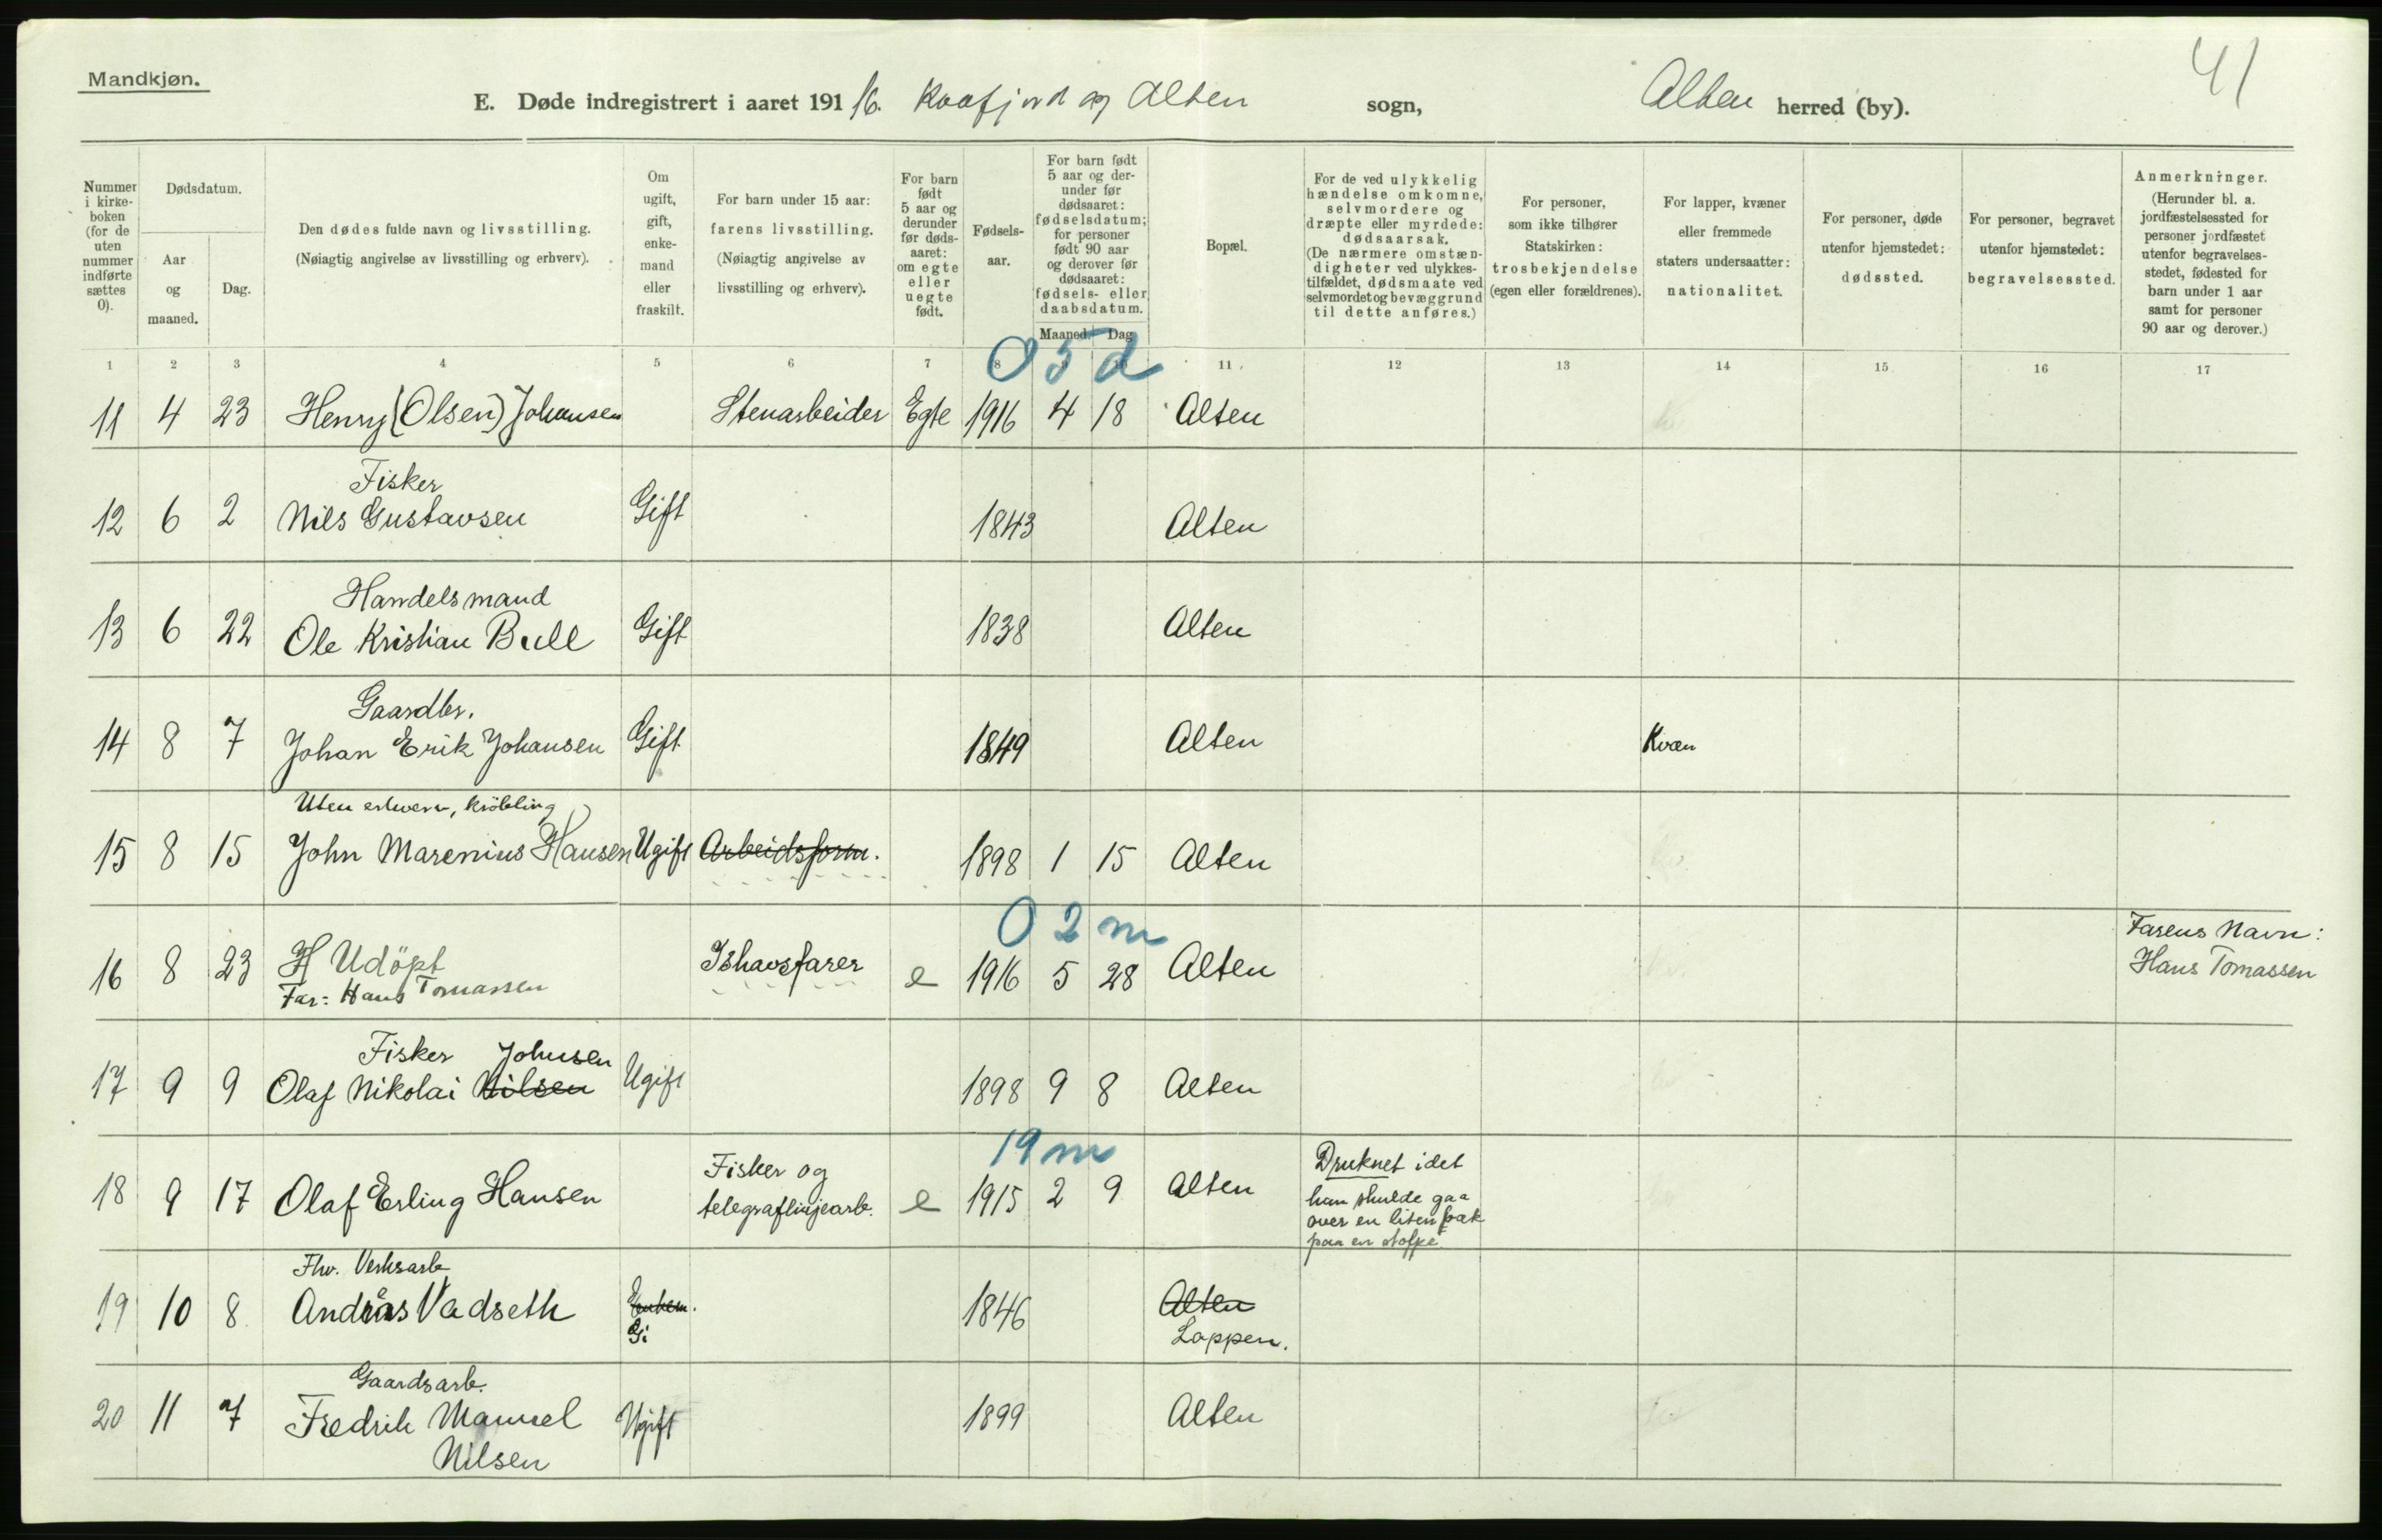 Mandkjøn.
41
E. Døde indregistrert i aaret 191 16. Kaafjord og Alten sogn, Alten herred (by).
Nummer i kirke- boken (for de uten nummer indførte sættes 0).
Dødsdatum.
Aar og maaned.
Dag.
Den dødes fulde navn og livsstilling.
(Nøiagtig angivelse av livsstilling og erhverv).
Om ugift, gift, enke- mand eller fraskilt.
For barn under 15 aar:
farens livsstilling.
(Nøiagtig angivelse av livsstilling og erhverv).
For barn født 5 aar og derunder før døds- aaret: om egte eller uegte født.
Fødsels- aar.
For barn født 5 aar og der- under før dødsaaret: fødselsdatum; for personer født 90 aar og derover før dødsaaret: fødsels- eller daabsdatum.
Maaned. Dag.
Bopæl.
For de ved ulykkelig hændelse omkomne, selvmordere og dræpte eller myrdede: dødsaarsak.
(De nærmere omstæn- digheter ved ulykkes- tilfældet, dødsmaate ved selvmordet og bevæggrund til dette anføres.)
For personer, som ikke tilhører Statskirken: trosbekjendelse (egen eller forældrenes).
For lapper, kvæner eller fremmede staters undersaatter: nationalitet.
For personer, døde utenfor hjemstedet: dødssted.
For personer, begravet utenfor hjemstedet: begravelsessted.
Anmerkninger.
(Herunder bl. a. jordfæstelsessted for personer jordfæstet utenfor begravelses- stedet, fødested for barn under 1 aar samt for personer 90 aar og derover.)
1 2 3 4 5 6 7 8 11 12 13 14 15 16 17
0 5 d
11 4 23 Henry (Olsen) Johansen Stenarbeider Egte 1916 4 18 Alten
Fisker
12 6 2 Nils Gustavsen Gift 1843 Alten
Handelsmand
13 6 22 Ole Kristian Bull Gift 1838 Alten
Gaardbr.
14 8 7 Johan Erik Johansen Gift 1849 Alten Kvæn
Uten erhverv, krøbling
15 8 15 John Marenius Hansen Ugift Arbeidsform. 1898 1 15 Alten
0 2 m
16 8 23 H Udöpt Ishavsfarer e 1916 5 28 Alten Farens Navn:
Far: Hans Tomassen Hans Tomassen
Fisker Johnsen
17 9 9 Olaf Nikolai Nilsen Ugift 1898 9 8 Alten
19 m
18 9 17 Olaf Erling Hansen Fisker og telegraflinjearb. e 1915 2 9 Alten Druknet idet
han skulde gaa
over en liten bæk
paa en stolpe
Fhv. Verksarb
19 10 8 Andras Vadseth Enkem. 1846 Alten
Gi Loppen.
Gaardsarb.
20 11 7 Fredrik Manuel Ugift 1899 Alten
Nilsen